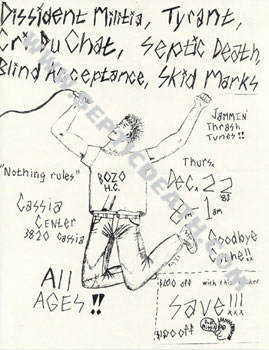 Dissident Militia, Tyrant,
Cri Du Chat, Septic Death,
Blind Acceptance, Skid Marks
Jammin'
Thrash
Tunes!!
"Nothing rules"
BOZO
H.C.
Thurs.
Dec. 22
83
8 - 1am
Cassia
Center
3820 Cassia
Goodbye
Cone!!
All
AGES!!
$1.00 off with this
Save!!!
xxx
$1.00 off
WWW.SEPTICDEATH.COM